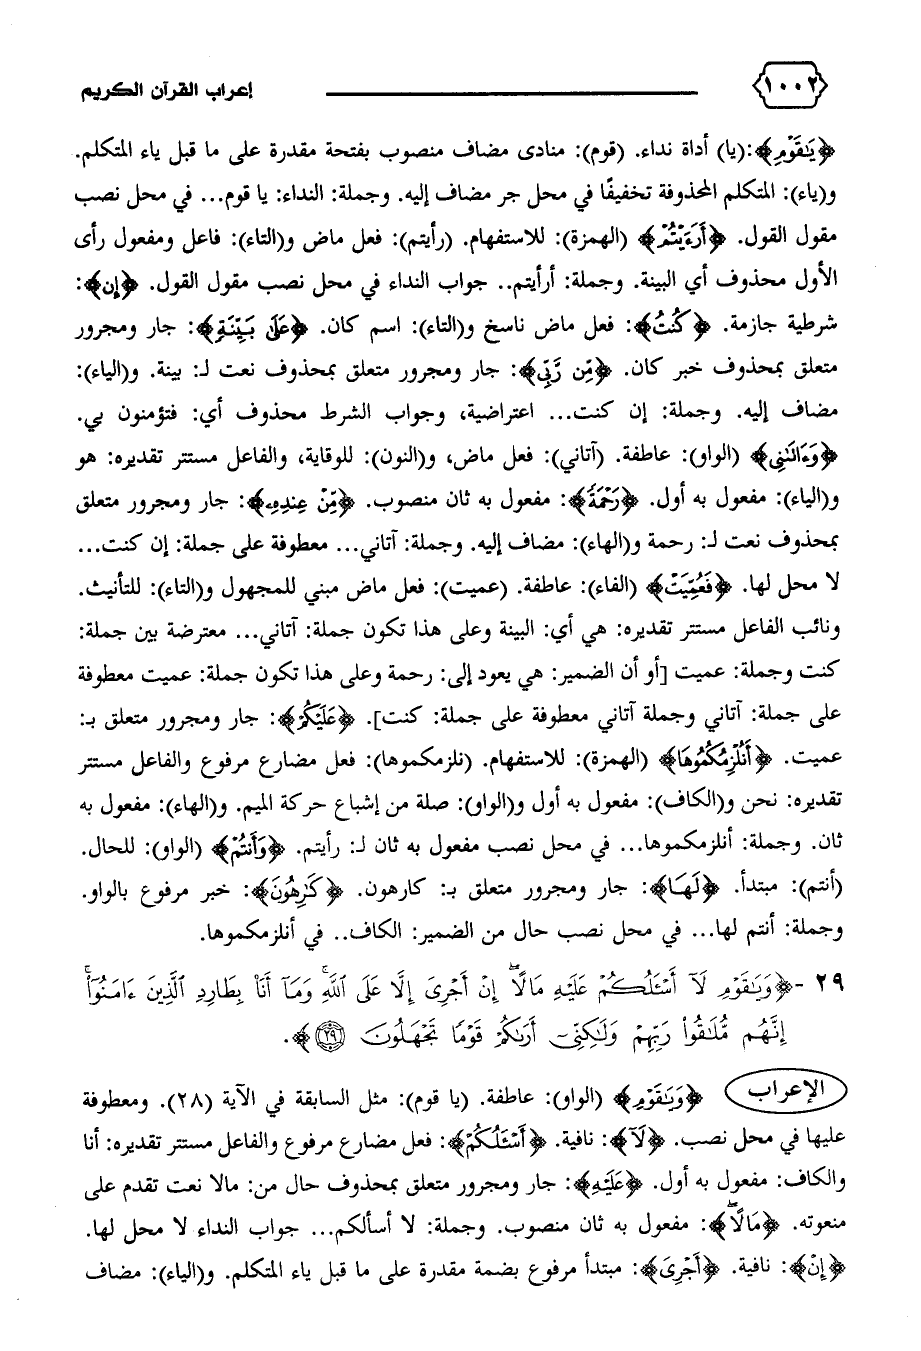 ١٠٠٢ إعراب القرآن الكريم
﴿يَٰقَوْمِ﴾:(يا) أداة نداء. (قوم): منادى مضاف منصوب بفتحة مقدرة على ما قبل ياء المتكلم.
و(ياء): المتكلم المحذوفة تخفيفًا في محل جر مضاف إليه. وجملة: النداء: يا قوم... في محل نصب
مقول القول. ﴿أَرَءَيْتُمْ﴾ (الهمزة): للاستفهام. (رأيتم): فعل ماض و(التاء): فاعل ومفعول رأى
الأول محذوف أي البينة. وجملة: أرأيتم.. جواب النداء في محل نصب مقول القول. ﴿إِن﴾:
شرطية جازمة. ﴿كُنتُ﴾: فعل ماض ناسخ و(التاء): اسم كان. ﴿عَلَىٰ بَيِّنَةٍ﴾: جار ومجرور
متعلق بمحذوف خبر كان. ﴿مِّن رَّبِّى﴾: جار ومجرور متعلق بمحذوف نعت لـ: بينة. و(الياء):
مضاف إليه. وجملة: إن كنت... اعتراضية، وجواب الشرط محذوف أي: فتؤمنون بي.
﴿وَءَاتَىٰنِى﴾ (الواو): عاطفة. (آتاني): فعل ماض، و(النون): للوقاية، والفاعل مستتر تقديره: هو
و(الياء): مفعول به أول. ﴿رَحْمَةً﴾: مفعول به ثان منصوب. ﴿مِّنْ عِندِهِۦ﴾: جار ومجرور متعلق
بمحذوف نعت لـ: رحمة و(الهاء): مضاف إليه. وجملة: آتاني... معطوفة على جملة: إن كنت...
لا محل لها. ﴿فَعُمِّيَتْ﴾ (الفاء): عاطفة. (عميت): فعل ماض مبني للمجهول و(التاء): للتأنيث.
ونائب الفاعل مستتر تقديره: هي أي: البينة وعلى هذا تكون جملة: آتاني... معترضة بين جملة:
كنت وجملة: عميت [أو أن الضمير: هي يعود إلى: رحمة وعلى هذا تكون جملة: عميت معطوفة
على جملة: آتاني وجملة آتاني معطوفة على جملة: كنت]. ﴿عَلَيْكُمْ﴾: جار ومجرور متعلق بـ:
عميت. ﴿أَنُلْزِمُكُمُوهَا﴾ (الهمزة): للاستفهام. (نلزمكموها): فعل مضارع مرفوع والفاعل مستتر
تقديره: نحن و(الكاف): مفعول به أول و(الواو): صلة من إشباع حركة الميم. و(الهاء): مفعول به
ثان. وجملة: أنلزمكموها... في محل نصب مفعول به ثان لـ: رأيتم. ﴿وَأَنتُمْ﴾ (الواو): للحال.
(أنتم): مبتدأ. ﴿لَهَا﴾: جار ومجرور متعلق بـ: كارهون. ﴿كَٰرِهُونَ﴾: خبر مرفوع بالواو.
وجملة: أنتم لها... في محل نصب حال من الضمير: الكاف.. في أنلزمكموها.
٢٩ - ﴿وَيَٰقَوْمِ لَآ أَسْـَٔلُكُمْ عَلَيْهِ مَالًا ۖ إِنْ أَجْرِىَ إِلَّا عَلَى ٱللَّهِ ۚ وَمَآ أَنَا۠ بِطَارِدِ ٱلَّذِينَ ءَامَنُوٓا۟ ۚ
إِنَّهُم مُّلَٰقُوا۟ رَبِّهِمْ وَلَٰكِنِّىٓ أَرَىٰكُمْ قَوْمًا تَجْهَلُونَ ٢٩﴾.
الإعراب ﴿وَيَٰقَوْمِ﴾ (الواو): عاطفة. (يا قوم): مثل السابقة في الآية (٢٨). ومعطوفة
عليها في محل نصب. ﴿لَآ﴾: نافية. ﴿أَسْـَٔلُكُمْ﴾: فعل مضارع مرفوع والفاعل مستتر تقديره: أنا
والكاف: مفعول به أول. ﴿عَلَيْهِ﴾: جار ومجرور متعلق بمحذوف حال من: مالا نعت تقدم على
منعوته. ﴿مَالًا ۖ﴾: مفعول به ثان منصوب. وجملة: لا أسألكم... جواب النداء لا محل لها.
﴿إِنْ﴾: نافية. ﴿أَجْرِىَ﴾: مبتدأ مرفوع بضمة مقدرة على ما قبل ياء المتكلم. و(الياء): مضاف